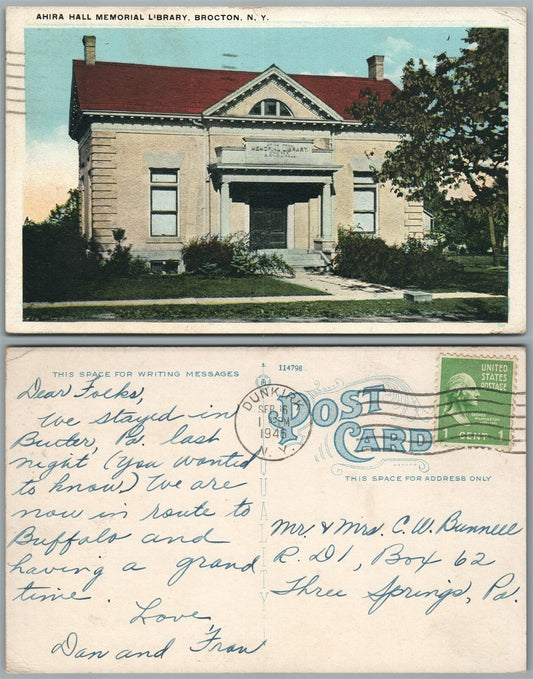 AHIRA HALL MEMORIAL LIBRARY, BROCTON, N. Y.
MEMORIAL LIBRARY
THIS SPACE FOR WRITING MESSAGES
114798
POST
CARD
THIS SPACE FOR ADDRESS ONLY
QUALITY
DUNKIRK
SEP 6
1 PM
194
N. Y.
UNITED
STATES
POSTAGE
1 CENT 1
Dear Folks,
We stayed in
Butler, Pa. last
night, (you wanted
to know.) We are
now in route to
Buffalo and
having a grand
time.
Love,
Dan and Fran
Mr. & Mrs. C. W. Bunnell
R. D 1, Box 62
Three Springs, Pa.